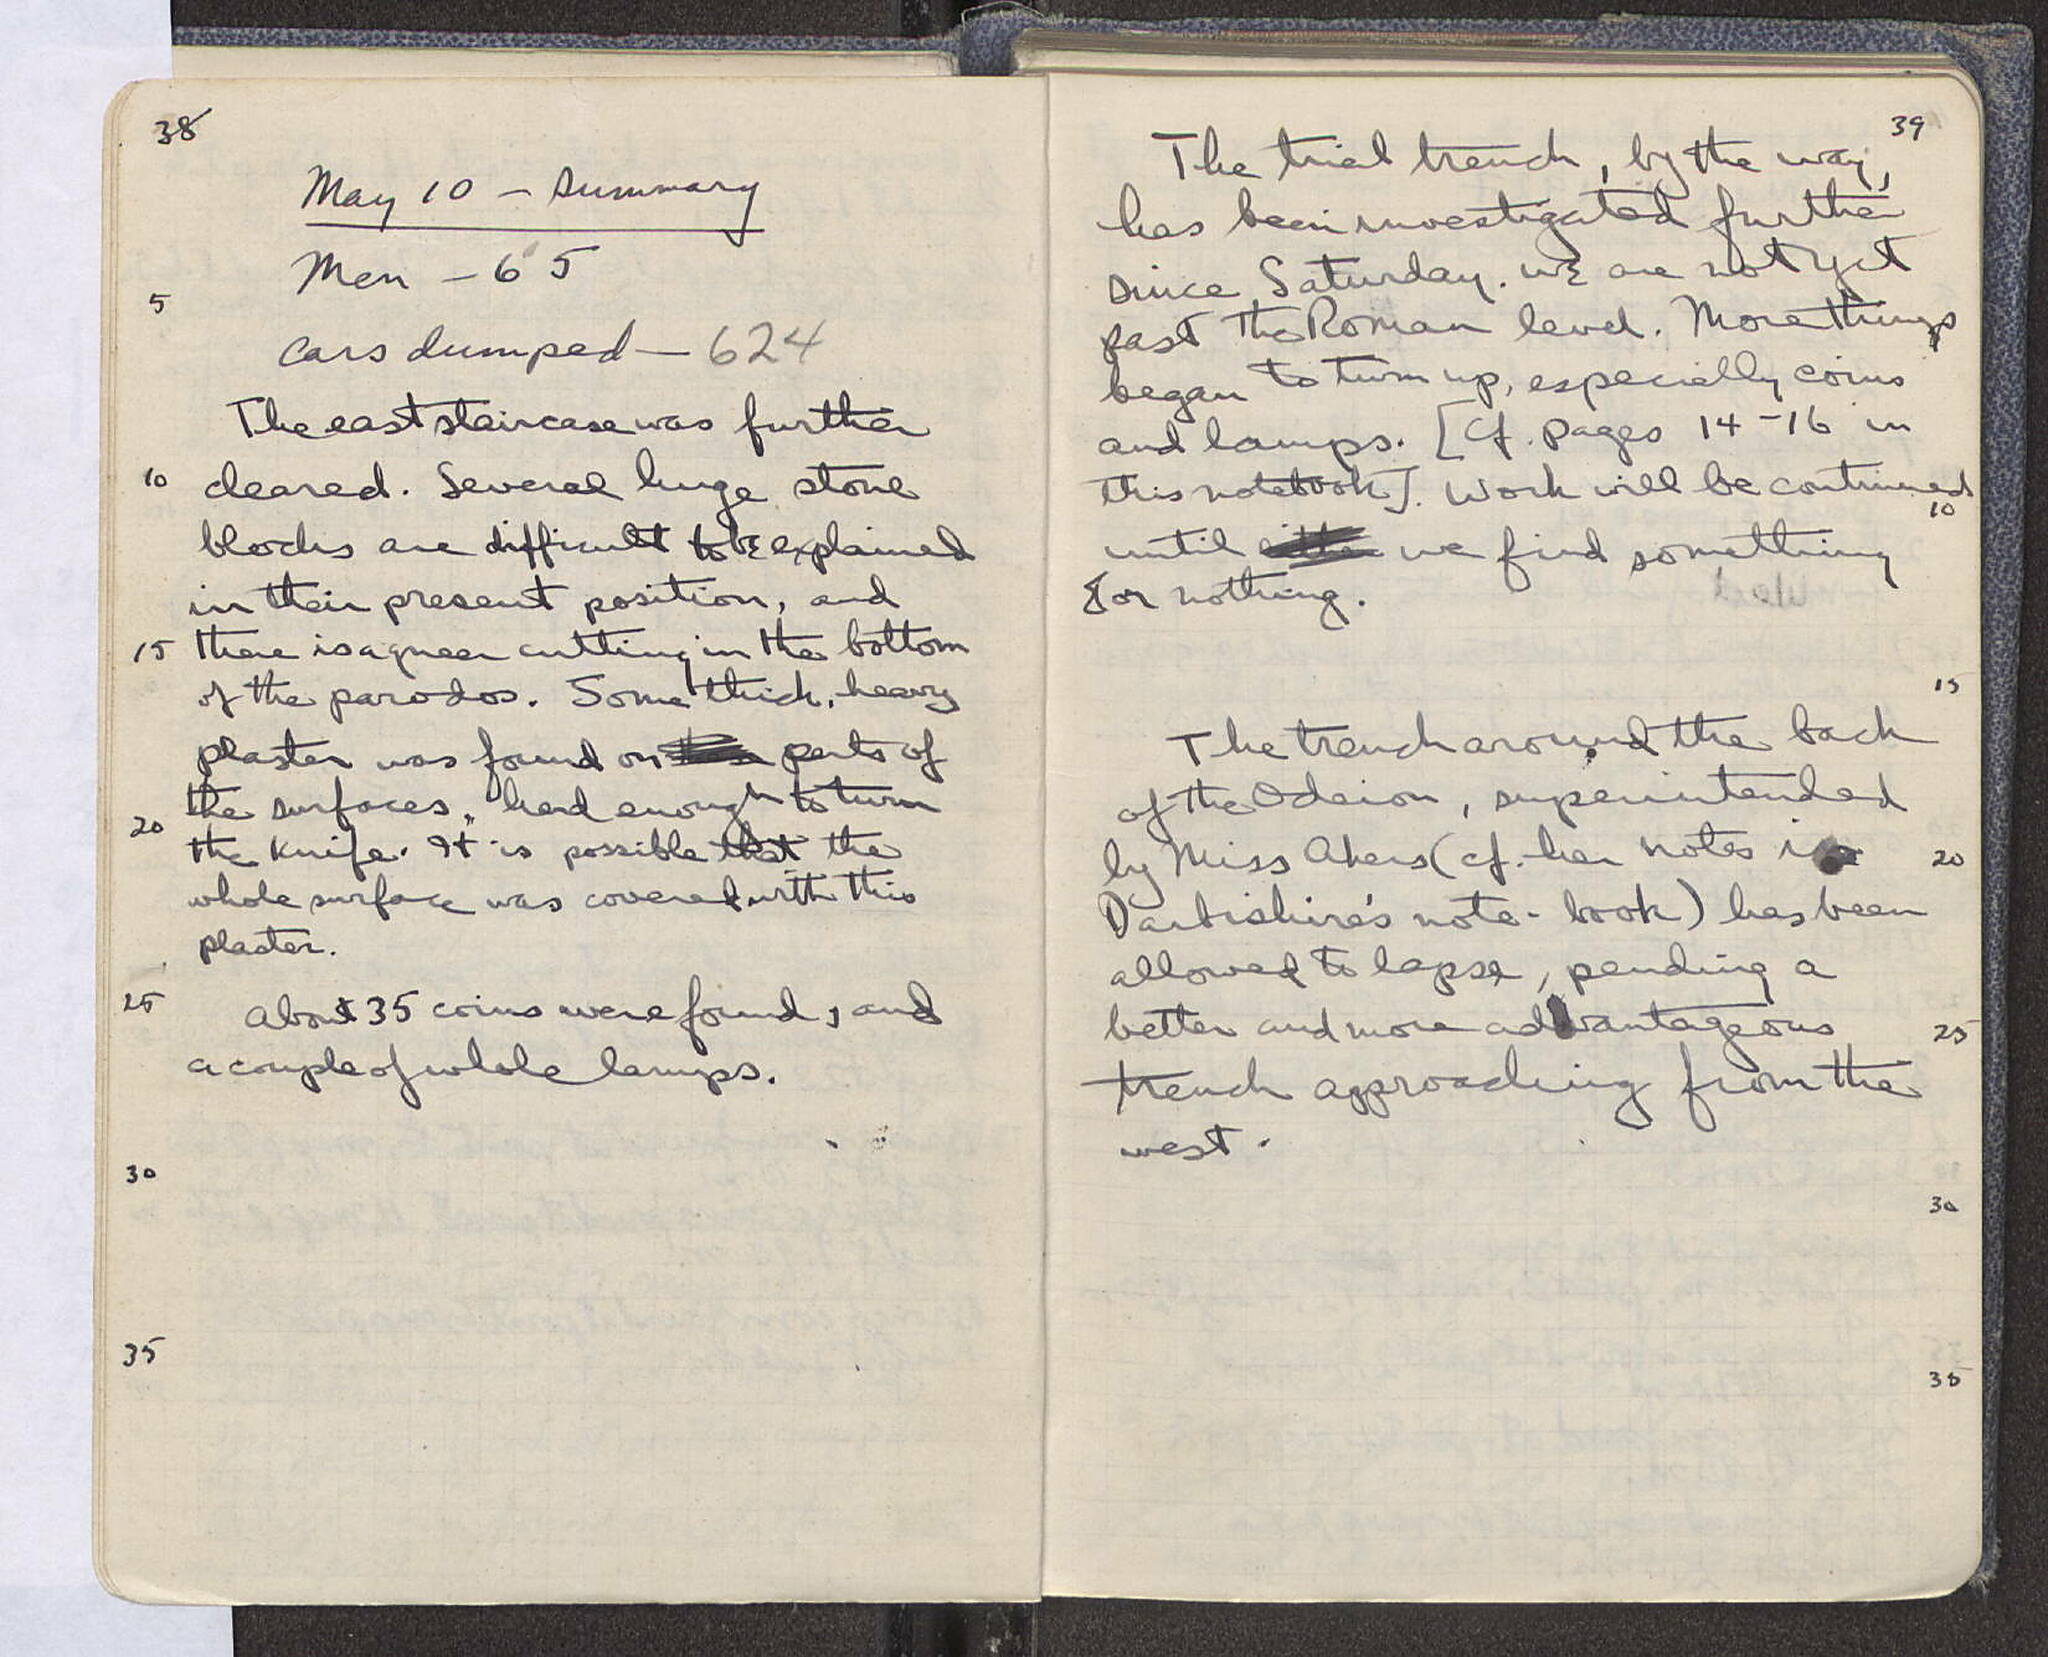 38
May 10 - Summary
Men - 65
5
Cars dumped - 624
The east staircase was further
10 cleared. Several huge stone
blocks are difficult to be explained
in their present position, and
15 there is a queer cutting in the bottom
of the parodos. Some thick, heavy
plaster was found on parts of
the surfaces, hard enough to turn
20 the knife. It is possible that the
whole surface was covered with this
plaster.
25 About 35 coins were found, and
a couple of whole lamps.
30
35
39
The trial trench, by the way,
has been investigated further
since Saturday. We are not yet
past the Roman level. More things
began to turn up, especially coins
and lamps. [Cf. pages 14-16 in
this notebook]. Work will be continued
10
until we find something
or nothing.
15
The trench around the back
of the Odeion, superintended
by Miss Akers (cf. her notes in 20
Darbishire's note-book) has been
allowed to lapse, pending a
better and more advantageous 25
trench approaching from the
west.
30
35